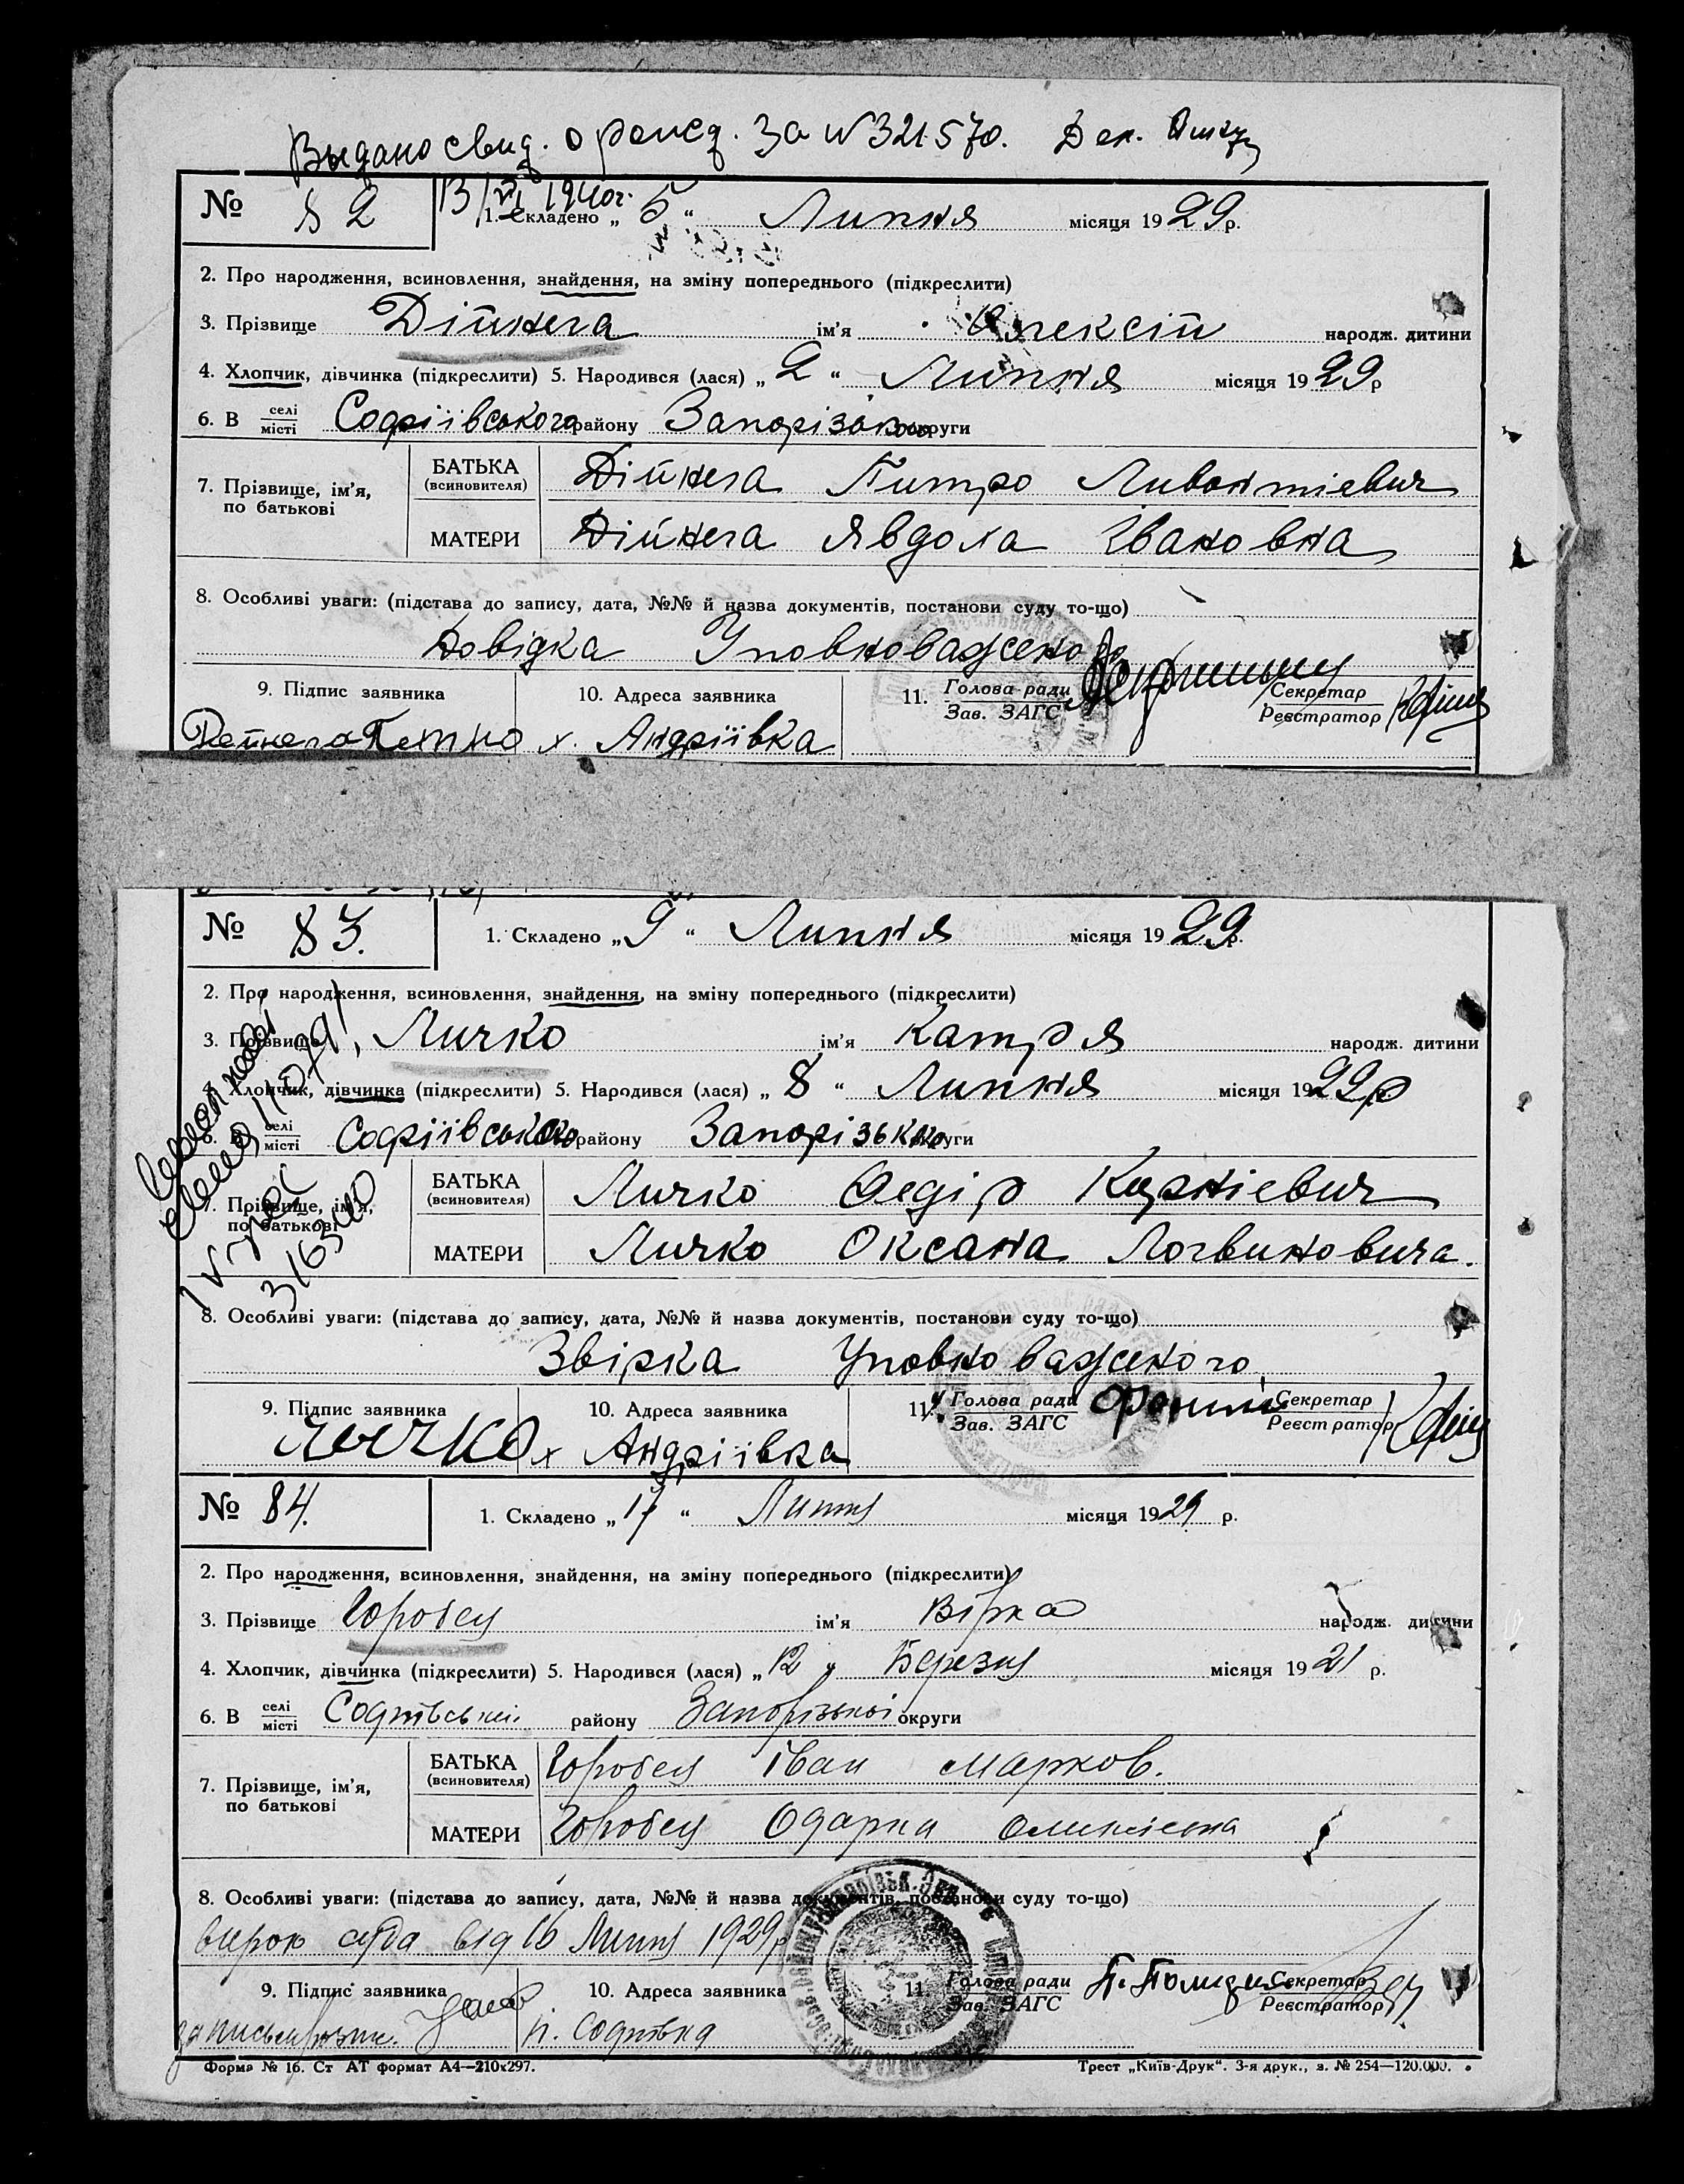 Выдано свид. о рожд. за №321570.
13/VI 1940г.
№ 82
1. Складено „ 5 “ Липня місяця 1929р.
2. Про народження, всиновлення, знайдення, на зміну попереднього (підкреслити)
3. Прізвище Дійнега ім'я Олексій народж. дитини
4. Хлопчик, дівчинка (підкреслити) 5. Народився (лася) „ 2 “ Липня місяця 1929р
6. В селі місті Софіївського району Запорізької округи
7. Прізвище, ім'я, по батькові
БАТЬКА (всиновителя) Дійнега Питро Ливонтіевич
МАТЕРИ Дійнега Явдоха Івановна
8. Особливі уваги: (підстава до запису, дата, №№ й назва документів, постанови суду то-що)
Довідка Уповноваженого
9. Підпис заявника 10. Адреса заявника 11. Голова ради Зав. ЗАГС Секретар Реєстратор
Дейнега Петро х. Андріївка
№ 83.
1. Складено „ 9 “ Липня місяця 1929р.
2. Про народження, всиновлення, знайдення, на зміну попереднього (підкреслити)
3. Прізвище Личко ім'я Катря народж. дитини
4. Хлопчик, дівчинка (підкреслити) 5. Народився (лася) „ 8 “ Липня місяця 1929р
6. В селі місті Софіївського району Запорізької округи
7. Прізвище, ім'я, по батькові
БАТЬКА (всиновителя) Личко Федір Карніевич
МАТЕРИ Личко Оксана Логвиновича.
8. Особливі уваги: (підстава до запису, дата, №№ й назва документів, постанови суду то-що)
Звірка Уповноваженого
9. Підпис заявника 10. Адреса заявника 11. Голова ради Зав. ЗАГС Секретар Реєстратор
Личко х Андріївка
№ 84.
1. Складено „ 17 “ Липня місяця 1929 р.
2. Про народження, всиновлення, знайдення, на зміну попереднього (підкреслити)
3. Прізвище Горобец ім'я Вірка народж. дитини
4. Хлопчик, дівчинка (підкреслити) 5. Народився (лася) „ 12 “ Березня місяця 1921 р.
6. В селі місті Софіївській району Запорізької округи
7. Прізвище, ім'я, по батькові
БАТЬКА (всиновителя) Горобец Іван Марков.
МАТЕРИ Горобец Одарка
8. Особливі уваги: (підстава до запису, дата, №№ й назва документів, постанови суду то-що)
вирок суда від 16 Липня 1929р
9. Підпис заявника 10. Адреса заявника 11. Голова ради Зав. ЗАГС Секретар Реєстратор
п. Софіївка
Форма № 16. Ст АТ формат А4—210х297. Трест „Київ-Друк“. 3-я друк., з. № 254—120.000.